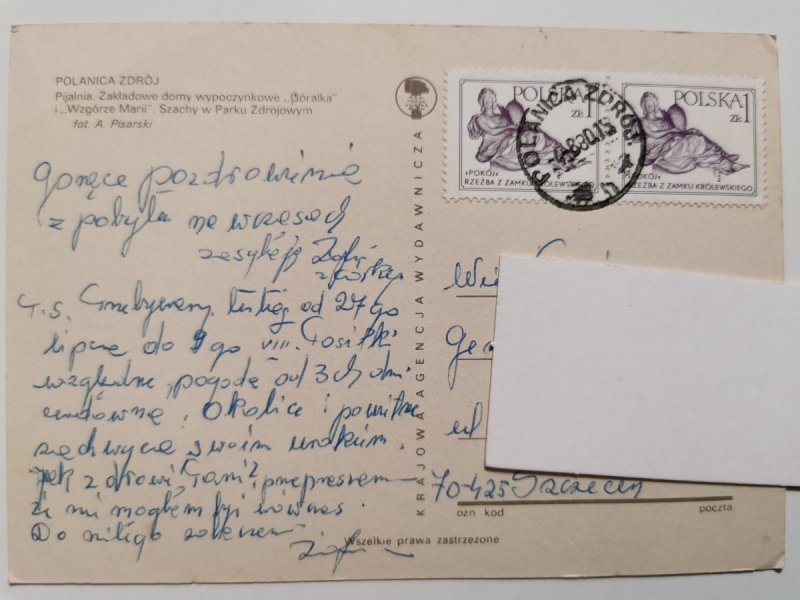 POLANICA ZDRÓJ
Pijalnia. Zakładowe domy wypoczynkowe „Góralka"
i „Wzgórze Marii". Szachy w Parku Zdrojowym
fot. A. Pisarski
KRAJOWA AGENCJA WYDAWNICZA
POLSKA 1 ZŁ
»POKÓJ«
RZEŹBA Z ZAMKU KRÓLEWSKIEGO
POLSKA 1 ZŁ
»POKÓJ«
RZEŹBA Z ZAMKU KRÓLEWSKIEGO
POLANICA ZDRÓJ
gorące pozdrowienia
z pobytu na wczasach
zasyłają
z córką
od 27go
lipca do 9go VIII. Posiłki
względne, pogoda od 3ch dni
cudowna. Okolice i
zachwyca swoim urokiem.
Jak zdrowie Pani? przepraszam
że nie mogłem być
Do miłego zobaczenia
Wie
Ge
ul
70-425 Szczecin
ozn kod
poczta
Wszelkie prawa zastrzeżone